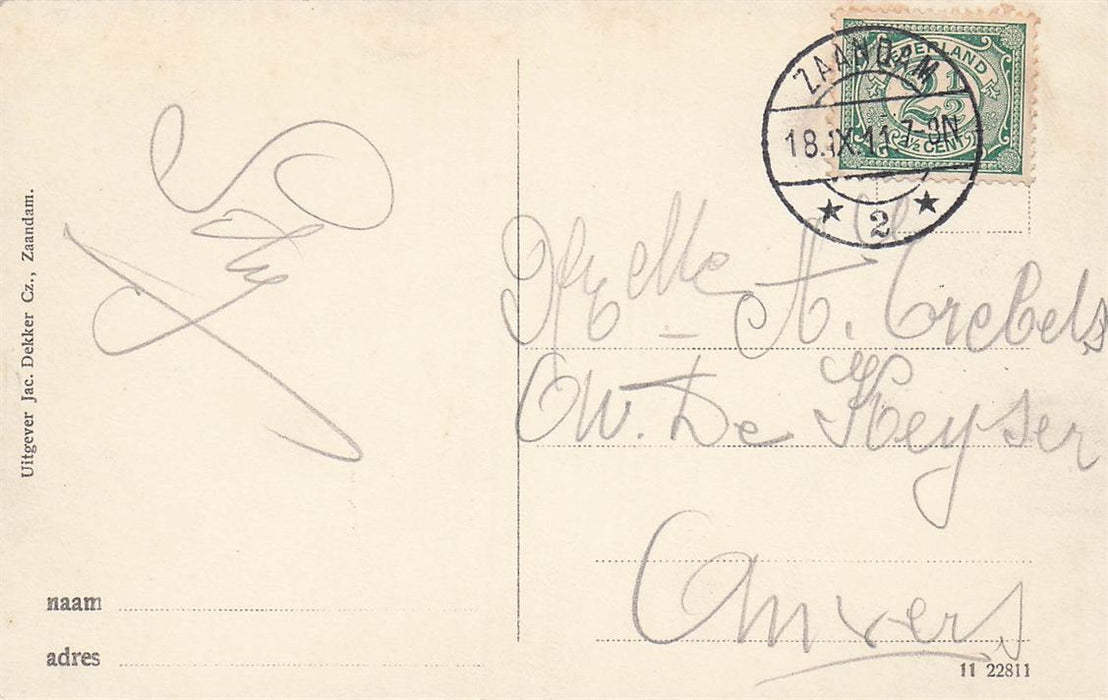 NEDERLAND
2½
2½ CENT
ZAANDAM
18.IX.11 7-8N
2
Uitgever Jac. Dekker Cz., Zaandam.
A. Crebels
W. De Keyser
Anvers
naam
adres
11 22811